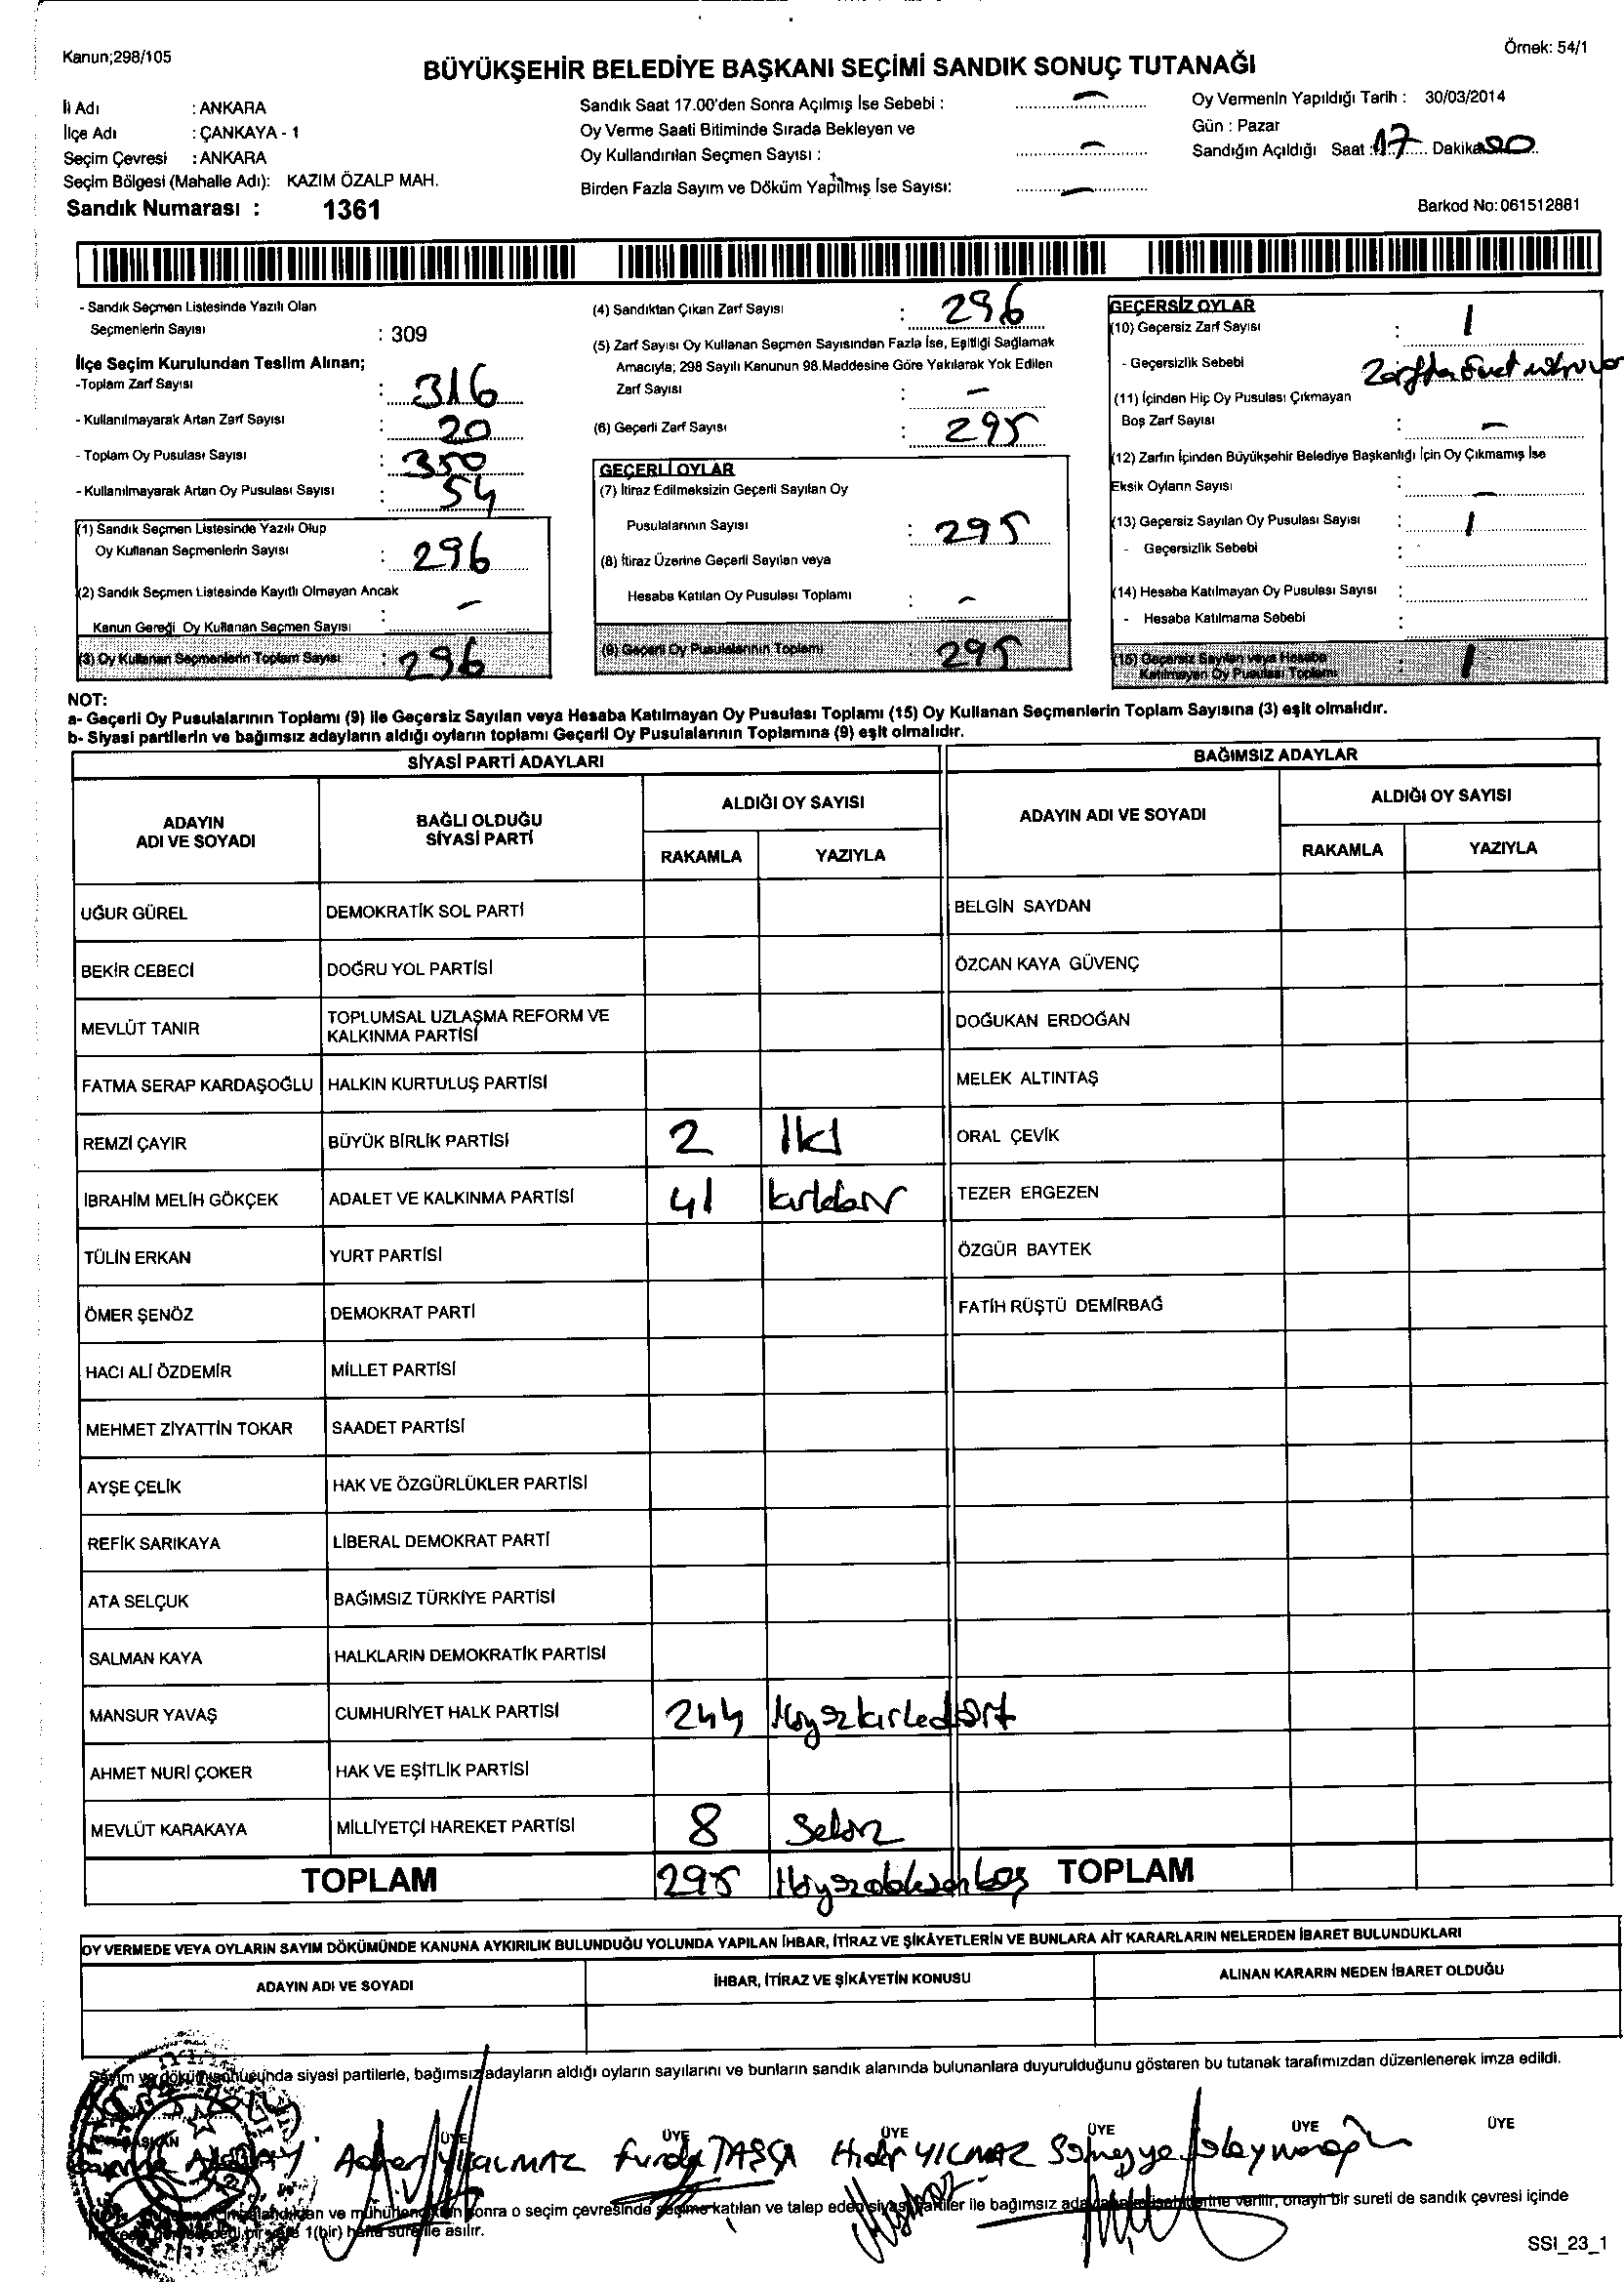 Kanun;298/105
Örnek: 54/1
BÜYÜKŞEHİR BELEDİYE BAŞKANI SEÇİMİ SANDIK SONUÇ TUTANAĞI
İl Adı : ANKARA
İlçe Adı : ÇANKAYA - 1
Seçim Çevresi : ANKARA
Seçim Bölgesi (Mahalle Adı): KAZIM ÖZALP MAH.
Sandık Numarası : 1361
Sandık Saat 17.00'den Sonra Açılmış İse Sebebi : –
Oy Verme Saati Bitiminde Sırada Bekleyen ve
Oy Kullandırılan Seçmen Sayısı : –
Birden Fazla Sayım ve Döküm Yapılmış İse Sayısı: –
Oy Vermenin Yapıldığı Tarih : 30/03/2014
Gün : Pazar
Sandığın Açıldığı Saat : 17 Dakika
Barkod No:061512881
- Sandık Seçmen Listesinde Yazılı Olan
Seçmenlerin Sayısı : 309
İlçe Seçim Kurulundan Teslim Alınan;
-Toplam Zarf Sayısı : 316
- Kullanılmayarak Artan Zarf Sayısı : 20
- Toplam Oy Pusulası Sayısı : 350
- Kullanılmayarak Artan Oy Pusulası Sayısı : 54
(1) Sandık Seçmen Listesinde Yazılı Olup
Oy Kullanan Seçmenlerin Sayısı : 296
(2) Sandık Seçmen Listesinde Kayıtlı Olmayan Ancak
Kanun Gereği Oy Kullanan Seçmen Sayısı : –
(3) Oy Kullanan Seçmenlerin Toplam Sayısı : 296
(4) Sandıktan Çıkan Zarf Sayısı : 296
(5) Zarf Sayısı Oy Kullanan Seçmen Sayısından Fazla İse, Eşitliği Sağlamak
Amacıyla; 298 Sayılı Kanunun 98.Maddesine Göre Yakılarak Yok Edilen
Zarf Sayısı : –
(6) Geçerli Zarf Sayısı : 295
GEÇERLİ OYLAR
(7) İtiraz Edilmeksizin Geçerli Sayılan Oy
Pusulalarının Sayısı : 295
(8) İtiraz Üzerine Geçerli Sayılan veya
Hesaba Katılan Oy Pusulası Toplamı : –
(9) Geçerli Oy Pusulalarının Toplamı 295
GEÇERSİZ OYLAR
(10) Geçersiz Zarf Sayısı : 1
- Geçersizlik Sebebi :
(11) İçinden Hiç Oy Pusulası Çıkmayan
Boş Zarf Sayısı : –
(12) Zarfın İçinden Büyükşehir Belediye Başkanlığı İçin Oy Çıkmamış İse
Eksik Oyların Sayısı : –
(13) Geçersiz Sayılan Oy Pusulası Sayısı : 1
- Geçersizlik Sebebi :
(14) Hesaba Katılmayan Oy Pusulası Sayısı :
- Hesaba Katılmama Sebebi :
(15) Geçersiz Sayılan veya Hesaba
Katılmayan Oy Pusulası Toplamı : 1
NOT:
a- Geçerli Oy Pusulalarının Toplamı (9) ile Geçersiz Sayılan veya Hesaba Katılmayan Oy Pusulası Toplamı (15) Oy Kullanan Seçmenlerin Toplam Sayısına (3) eşit olmalıdır.
b- Siyasi partilerin ve bağımsız adayların aldığı oyların toplamı Geçerli Oy Pusulalarının Toplamına (9) eşit olmalıdır.
SİYASİ PARTİ ADAYLARI
BAĞIMSIZ ADAYLAR
ADAYIN
ADI VE SOYADI
BAĞLI OLDUĞU
SİYASİ PARTİ
ALDIĞI OY SAYISI
RAKAMLA YAZIYLA
ADAYIN ADI VE SOYADI
ALDIĞI OY SAYISI
RAKAMLA YAZIYLA
UĞUR GÜREL DEMOKRATİK SOL PARTİ BELGİN SAYDAN
BEKİR CEBECİ DOĞRU YOL PARTİSİ ÖZCAN KAYA GÜVENÇ
MEVLÜT TANIR TOPLUMSAL UZLAŞMA REFORM VE
KALKINMA PARTİSİ DOĞUKAN ERDOĞAN
FATMA SERAP KARDAŞOĞLU HALKIN KURTULUŞ PARTİSİ MELEK ALTINTAŞ
REMZİ ÇAYIR BÜYÜK BİRLİK PARTİSİ 2 İKİ ORAL ÇEVİK
İBRAHİM MELİH GÖKÇEK ADALET VE KALKINMA PARTİSİ 41 kırkbir TEZER ERGEZEN
TÜLİN ERKAN YURT PARTİSİ ÖZGÜR BAYTEK
ÖMER ŞENÖZ DEMOKRAT PARTİ FATİH RÜŞTÜ DEMİRBAĞ
HACI ALİ ÖZDEMİR MİLLET PARTİSİ
MEHMET ZİYATTİN TOKAR SAADET PARTİSİ
AYŞE ÇELİK HAK VE ÖZGÜRLÜKLER PARTİSİ
REFİK SARIKAYA LİBERAL DEMOKRAT PARTİ
ATA SELÇUK BAĞIMSIZ TÜRKİYE PARTİSİ
SALMAN KAYA HALKLARIN DEMOKRATİK PARTİSİ
MANSUR YAVAŞ CUMHURİYET HALK PARTİSİ 244 İkiyüzkırkdört
AHMET NURİ ÇOKER HAK VE EŞİTLİK PARTİSİ
MEVLÜT KARAKAYA MİLLİYETÇİ HAREKET PARTİSİ 8 Sekiz
TOPLAM 295 İkiyüzdoksanbeş TOPLAM
OY VERMEDE VEYA OYLARIN SAYIM DÖKÜMÜNDE KANUNA AYKIRILIK BULUNDUĞU YOLUNDA YAPILAN İHBAR, İTİRAZ VE ŞİKÂYETLERİN VE BUNLARA AİT KARARLARIN NELERDEN İBARET BULUNDUKLARI
ADAYIN ADI VE SOYADI İHBAR, İTİRAZ VE ŞİKÂYETİN KONUSU ALINAN KARARIN NEDEN İBARET OLDUĞU
Sayım ve döküm sonucunda siyasi partilerle, bağımsız adayların aldığı oyların sayılarını ve bunların sandık alanında bulunanlara duyurulduğunu gösteren bu tutanak tarafımızdan düzenlenerek imza edildi.
BAŞKAN ÜYE ÜYE ÜYE ÜYE ÜYE ÜYE
YILMAZ Funda TAŞÇI Hıdır YILMAZ Sümeyye
ve mühürlendikten sonra o seçim çevresinde seçime katılan ve talep eden siyasi partiler ile bağımsız verilir, onaylı bir sureti de sandık çevresi içinde
1(bir) hafta süre ile asılır.
SSI_23_1